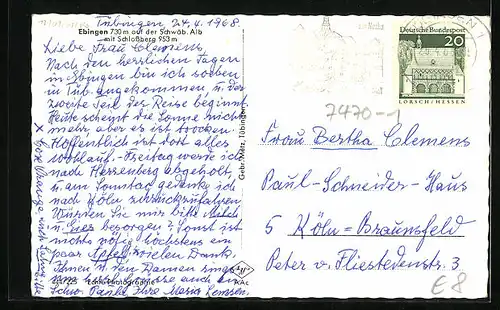 Tübingen, 24.4.1968.
Ebingen 730 m auf der Schwäb. Alb
mit Schloßberg 953 m
Liebe Frau Clemens,
Nach den herrlichen Tagen
in Ebingen bin ich soeben
in Tüb. angekommen u. der
zweite Teil der Reise beginnt
Heute scheint die Sonne nicht
mehr, aber es ist trocken.
Hoffentlich ist dort alles
wohlauf. - Freitag werde ich
nach Herrenberg abgeholt,
u. am Sonntag gedenke ich
nach Köln zurückzufahren
Würden Sie mir bitte Milch
u. Eier besorgen? Sonst ist
nichts nötig höchstens ein
paar Äpfel. Vielen Dank.
Ihnen u. den Damen
Grüsse auch an
Schw. Paula Ihre Maria
Gebr. Metz, Tübingen
Deutsche Bundespost
20
LORSCH/HESSEN
7470-1
Frau Bertha Clemens
Paul-Schneider-Haus
5 Köln-Braunsfeld
Peter v. Fliestedenstr. 3
€8